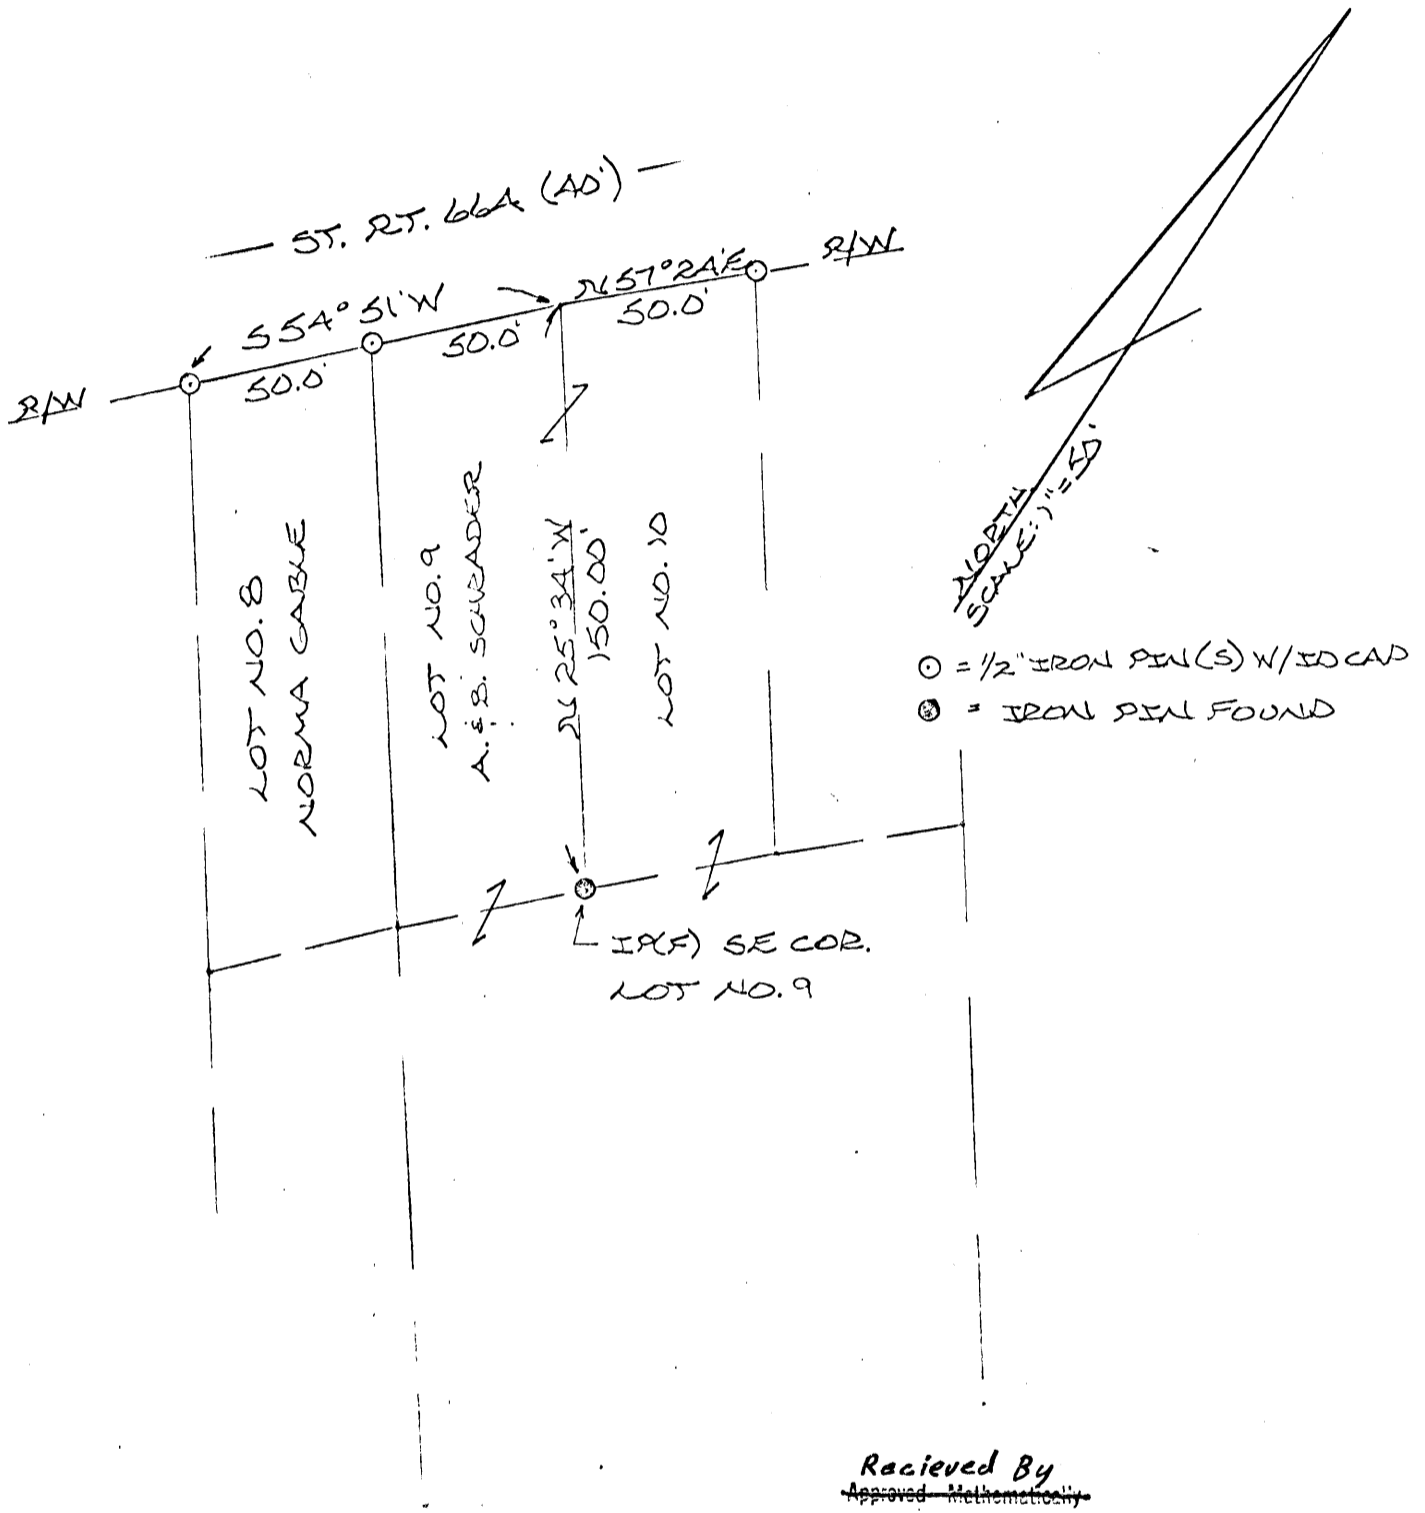 ST. RT. 664 (40')
R/W
N 57° 24' E
50.0'
S 54° 51' W
50.0'
50.0'
R/W
LOT NO. 8
NORMA CABLE
LOT NO. 9
A. & B. SCHRADER
N 25° 34' W
150.00'
LOT NO. 10
NORTH
SCALE: 1" = 50'
= 1/2" IRON PIN(S) W/ID CAP
= IRON PIN FOUND
IP(F) SE COR.
LOT NO. 9
Recieved By
Approved Mathematically